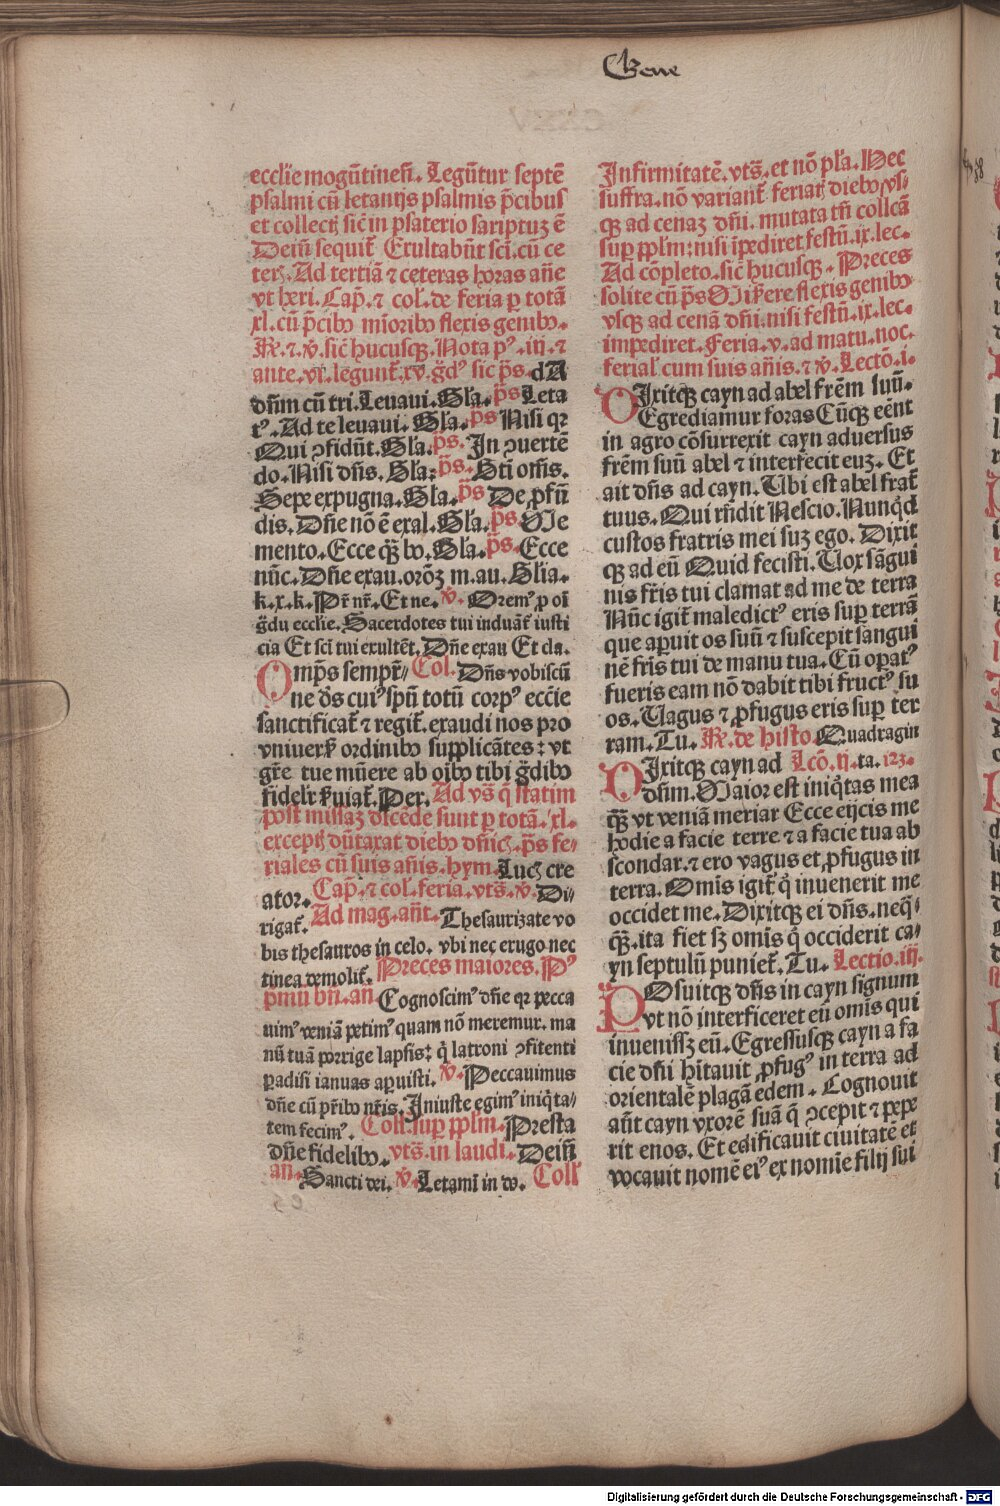 Gene
ecclie mogūtineñ. Legūtur septē
psalmi cū letanijs psalmis p̄cibus
et collectꝭ sic̄ in psaterio scriptuꝫ ē
Deiñ sequit᷑ Exultabūt scī. cū ce
terꝭ. Ad tertiā ⁊ ceteras horas añe
vt heri. Cap̄. ⁊ col᷑. de feria ꝑ totā
xl. cū p̄cibꝰ mīoribꝰ flexis genibꝰ.
R̄. ⁊. v̄. sic̄ hucusqꝫ. Nota pꝰ. iij. ⁊
ante. vī. legunt᷑. xv. g̃dꝰ sic p̄s. dA
dñm cū tri. Leuaui. Gl̄a. p̄s Leta
tꝰ. Ad te leuaui. Gl̄a. p̄s Nisi qꝛ
Qui ꝯfidūt. Gl̄a. p̄s. In ꝯuertē
do. Nisi dñs. Gl̄a: p̄s. Bti om̄s.
Sepe expugna. Gl̄a. p̄s De ꝓfū
dis. Dñe nō ē exal. Gl̄a. p̄s. Me
mento. Ecce qꝫ̄ bo. Gl̄a. p̄s. Ecce
nūc. Dñe exau. orōꝫ m. au. Gl̄ia.
k. x. k. Pr̄ nr̄. Et ne. v̄. Oremꝰ ꝓ oī
g̃du ecclie. Sacerdotes tui induāt᷑ iusti
cia Et scī tui exultēt. Dñe exau Et cla.
Omp̄s sempr̄⸗ Col. Dñs vobiscū
ne d̄s cuiꝰ spū totū corpꝰ ecc̄ie
sanctificat᷑ ⁊ regit᷑. exaudi nos pro
vniuersꝭ ordinibꝰ supplicātes: vt
gr̄e tue mūere ab oībꝰ tibi g̃dibꝰ
fidelr̄ ẜuiat᷑. Per. Ad vs̄ꝫ q̄ statim
post missaꝫ dicēde sunt ꝑ totā. xl.
exceptꝭ dūtaxat diebꝰ dñicꝭ. p̄s fe⸗
riales cū suis añis. hym. Lucꝭ cre
ator. Cap̄. ⁊ col᷑. feria. vts̄. v̄. Di⸗
rigat᷑. Ad mag. añt. Thesaurizate vo
bis thesauros in celo. vbi nec erugo nec
tinea demolit᷑. Preces maiores. Pꝰ
pmū bñ. añ Cognoscimꝰ dñe qꝛ pecca
uimꝰ veniā petimꝰ quam nō meremur. ma
nū tuā porrige lapsis: q̇ latroni ꝯfitenti
padisi ianuas aperuisti. v̄. Peccauimus
dñe cū pr̄ibꝰ nr̄is. Iniuste egimꝰ iniq̇ta⸗
tem fecimꝰ. Coll᷑. sup pplm̄. Presta
dñe fidelibꝰ. vts̄. in laudi. Deiñ
añ. Sancti dei. v̄. Letamī in dō. Coll᷑
Infirmitatē. vts̄. et nō pl᷑a. Nec
suffra. nō variant᷑ feriaꝝ diebꝰ vs⸗
qꝫ ad cenaꝫ dñi. mutata tñ collcā
sup pplm̄: nisi īpediret festū. ix. lec.
Ad cōpleto. sic̄ hucusqꝫ. Preces
solite cū p̄s Miẜere flexis genibꝰ
vsqꝫ ad cenā dñi. nisi festū. ix. lec.
impediret. Feria. v. ad matu. noc.
ferial᷑ cum suis añis. ⁊ v̄. Lectō. i.
DIxitqꝫ cayn ad abel frēm suū.
Egrediamur foras Cūqꝫ eēnt
in agro cōsurrexit cayn aduersus
frēm suū abel ⁊ interfecit euꝫ. Et
ait dñs ad cayn. Ubi est abel frat᷑
tuus. Qui rñdit Nescio. Nunq̇d
custos fratris mei suꝫ ego. Dixit
qꝫ ad eū Quid fecisti. Uox sāgui
nis fr̄is tui clamat ad me de terra
Nūc igit᷑ maledictꝰ eris sup terrā
que aperuit os suū ⁊ suscepit sangui
nē fr̄is tui de manu tua. Cū opatꝰ
fueris eam nō dabit tibi fructꝰ su
os. Uagus ⁊ ꝓfugus eris sup ter
ram. Tu. R̄. de histo. Quadragin
DIxitqꝫ cayn ad Lcō. ij. ta. 123.
dñm. Maior est iniq̇tas mea
qꝫ̄ vt veniā meriar Ecce eijcis me
hodie a facie terre ⁊ a facie tua ab
scondar. ⁊ ero vagus et ꝓfugus in
terra. Omīs igit᷑ q̇ inuenerit me
occidet me. Dixitqꝫ ei dñs. neq̄⸗
qꝫ̄. ita fiet sꝫ omīs q̇ occiderit ca⸗
yn septulū puniet᷑. Tu. Lectio. iij.
POsuitqꝫ dñs in cayn signum
vt nō interficeret eū omis qui
inuenissꝫ eū. Egressusqꝫ cayn a fa
cie dñi hītauit ꝓfugꝰ in terra ad
orientalē plagā edem. Cognouit
aūt cayn vxorē suā q̄ ꝯcepit ⁊ pepe
rit enos. Et edificauit ciuitatē et
vocauit nomē eiꝰ ex nomīe filij sui
Digitalisierung gefördert durch die Deutsche Forschungsgemeinschaft - DFG